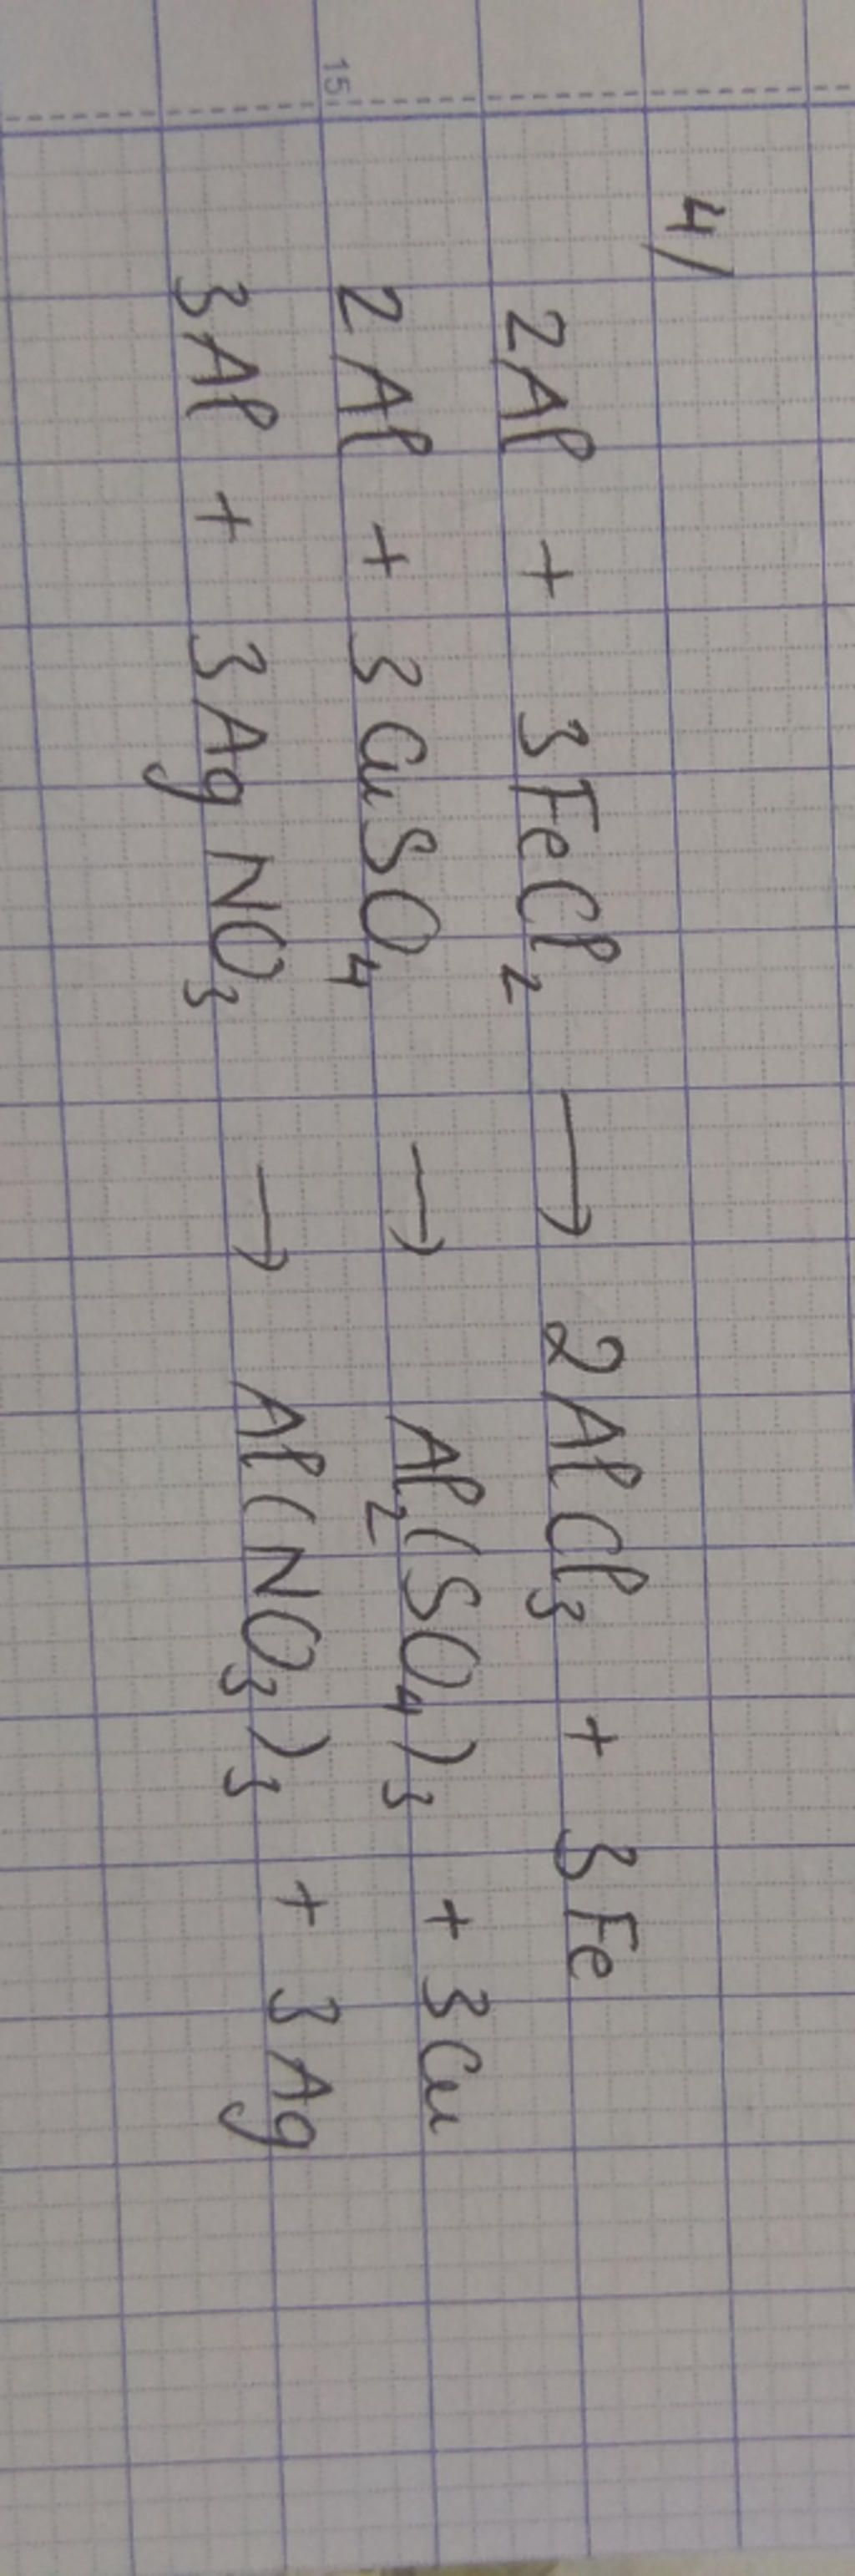 15
4/
2Al + 3FeCl₂ → 2AlCl₃ + 3Fe
2Al + 3CuSO₄ → Al₂(SO₄)₃ + 3Cu
3Al + 3AgNO₃ → Al(NO₃)₃ + 3Ag